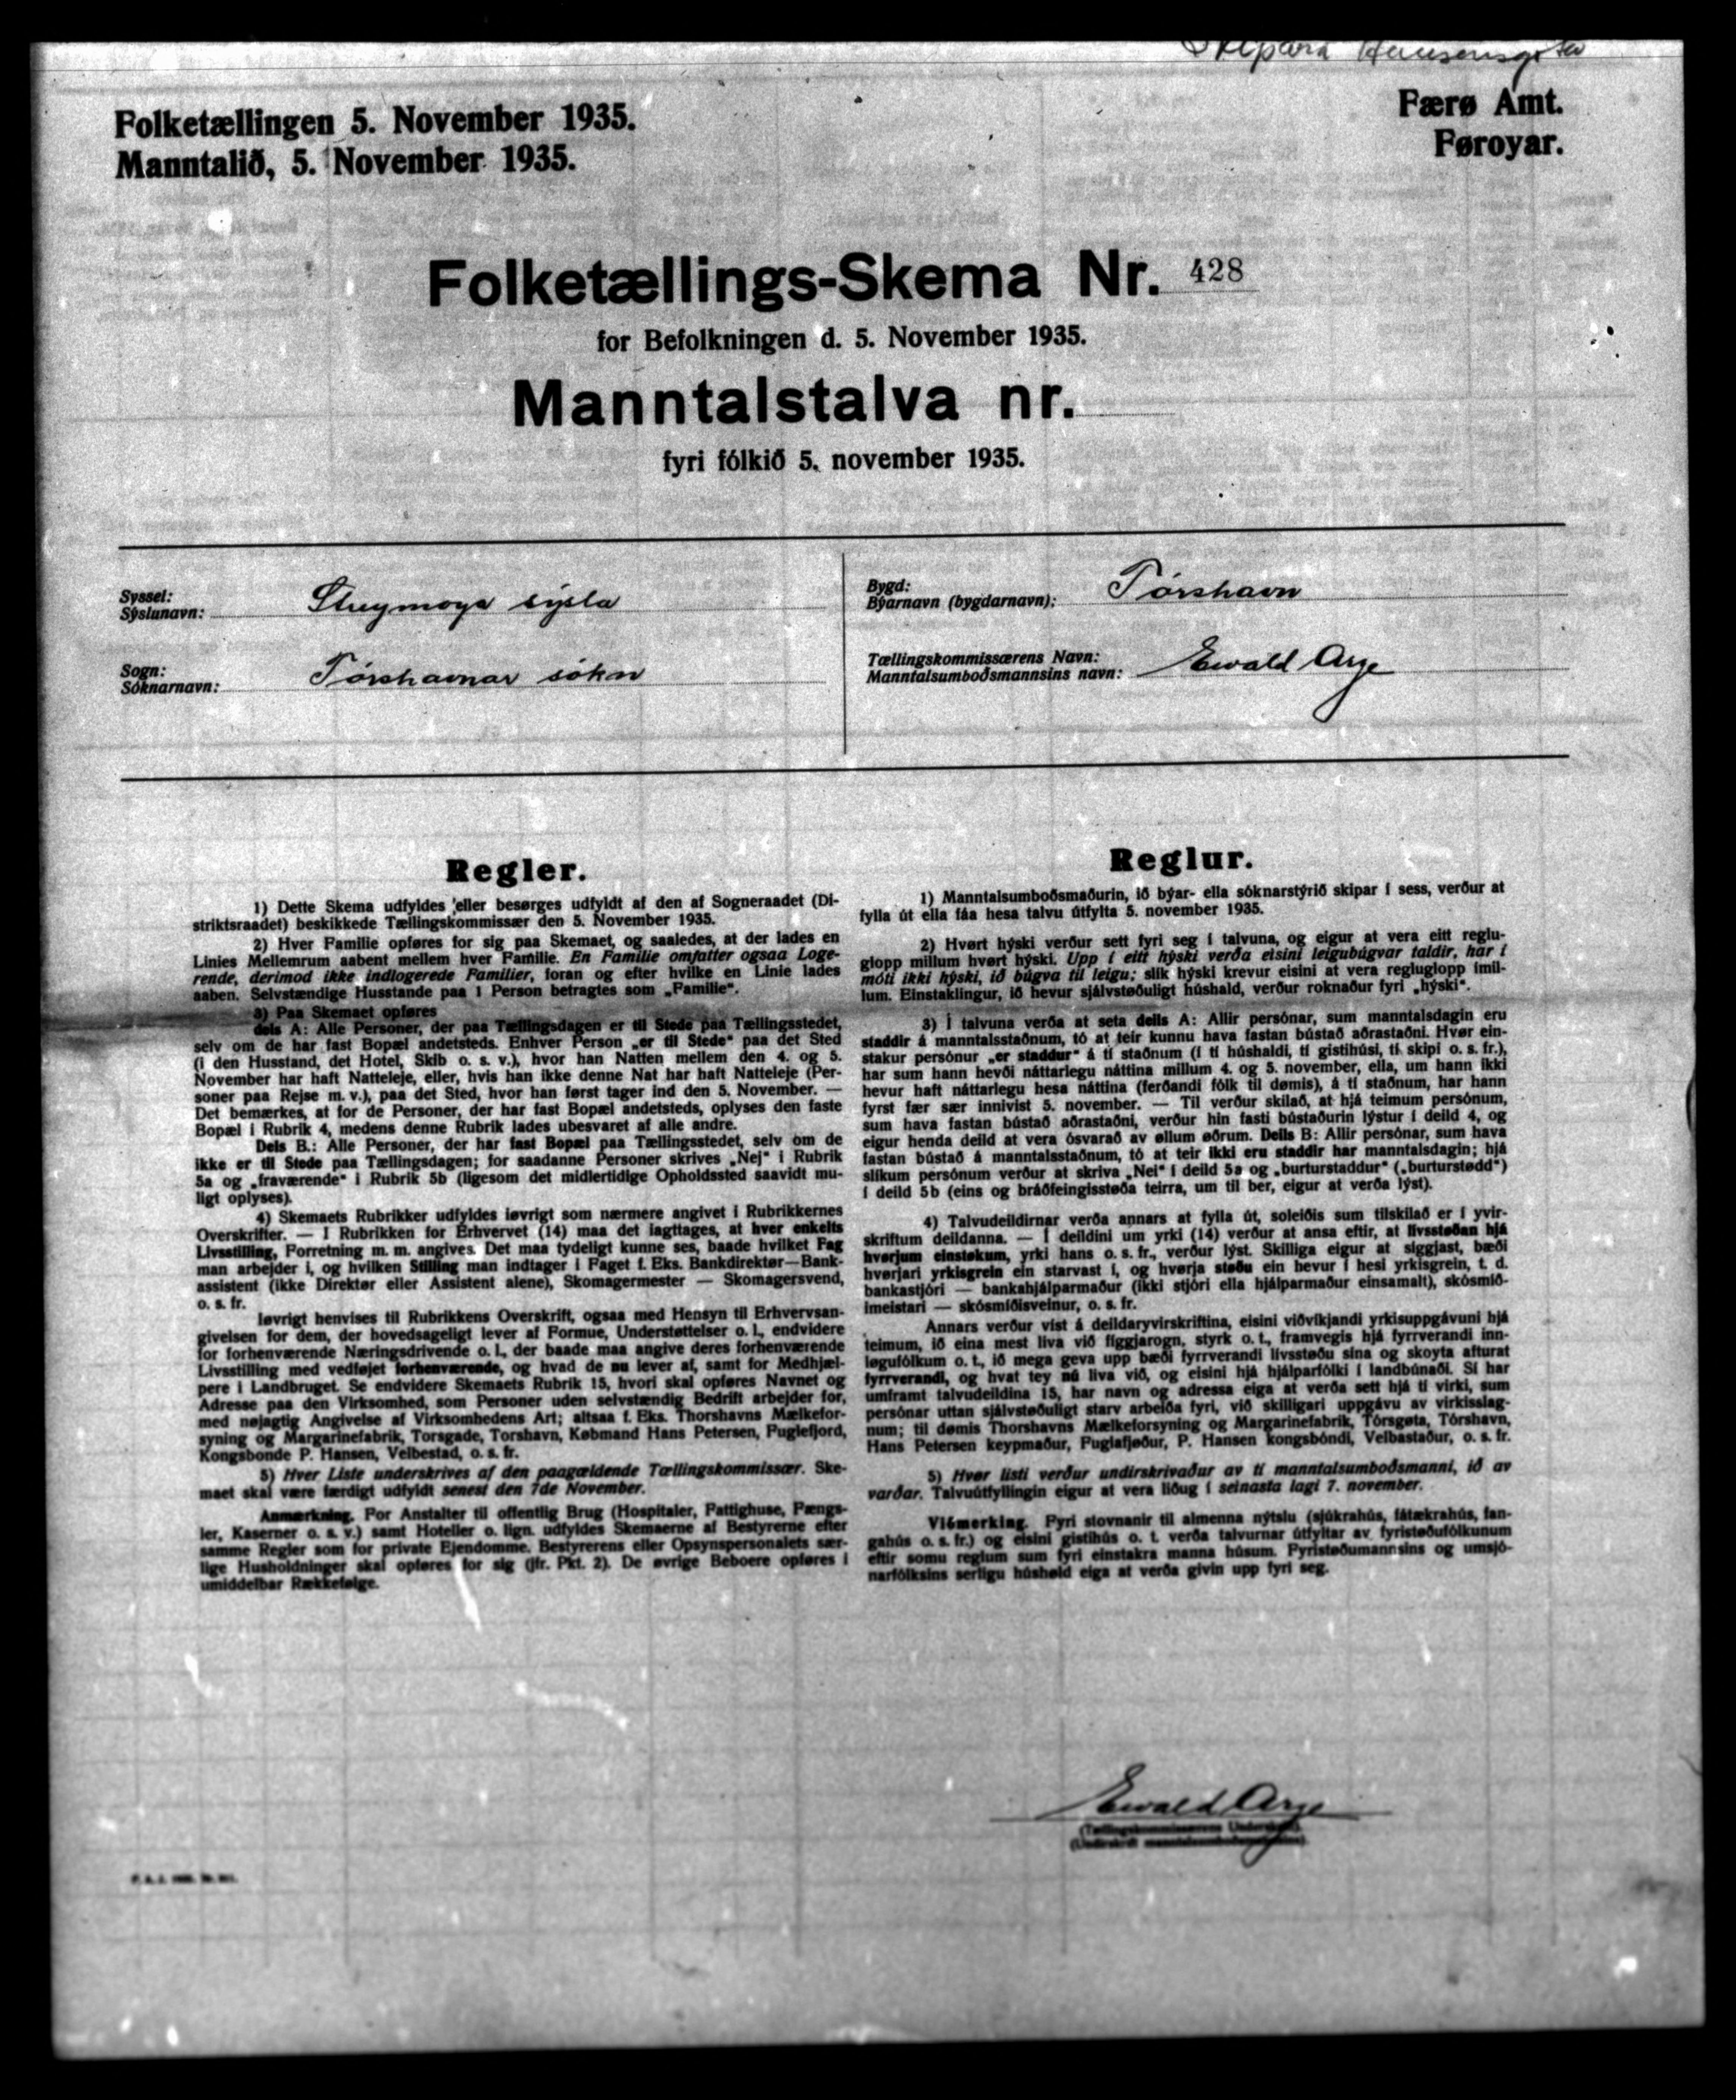 Folketællingen 5. November 1935.
Manntalið, 5. November 1935.
Færø Amt.
Føroyar.
Folketællings-Skema Nr. 428
for Befolkningen d. 5. November 1935.
Manntalstalva nr.
fyri fólkið 5. november 1935.
Syssel:
Sýslunavn: Streymoya sýsla
Sogn:
Sóknarnavn: Tórshavnar sókn
Bygd:
Býarnavn (bygdarnavn): Tórshavn
Tællingskommissærens Navn:
Manntalsumboðsmannsins navn: Ewald Arge
Regler.
1) Dette Skema udfyldes eller besørges udfyldt af den af Sogneraadet (Di-
striktsraadet) beskikkede Tællingskommissær den 5. November 1935.
2) Hver Familie opføres for sig paa Skemaet, og saaledes, at der lades en
Linies Mellemrum aabent mellem hver Familie. En Familie omfatter ogsaa Loge-
rende, derimod ikke indlogerede Familier, foran og efter hvilke en Linie lades
aaben. Selvstændige Husstande paa 1 Person betragtes som „Familie“.
3) Paa Skemaet opføres
dels A: Alle Personer, der paa Tællingsdagen er til Stede paa Tællingsstedet,
selv om de har fast Bopæl andetsteds. Enhver Person „er til Stede“ paa det Sted
(i den Husstand, det Hotel, Skib o. s. v.), hvor han Natten mellem den 4. og 5.
November har haft Natteleje, eller, hvis han ikke denne Nat har haft Natteleje (Per-
soner paa Rejse m. v.), paa det Sted, hvor han først tager ind den 5. November. —
Det bemærkes, at for de Personer, der har fast Bopæl andetsteds, oplyses den faste
Bopæl i Rubrik 4, medens denne Rubrik lades ubesvaret af alle andre.
Dels B.: Alle Personer, der har fast Bopæl paa Tællingsstedet, selv om de
ikke er til Stede paa Tællingsdagen; for saadanne Personer skrives „Nej“ i Rubrik
5a og „fraværende“ i Rubrik 5b (ligesom det midlertidige Opholdssted saavidt mu-
ligt oplyses).
4) Skemaets Rubrikker udfyldes iøvrigt som nærmere angivet i Rubrikkernes
Overskrifter. — I Rubrikken for Erhvervet (14) maa det iagttages, at hver enkelts
Livsstilling, Forretning m. m. angives. Det maa tydeligt kunne ses, baade hvilket Fag
man arbejder i, og hvilken Stilling man indtager i Faget f. Eks. Bankdirektør—Bank-
assistent (ikke Direktør eller Assistent alene), Skomagermester — Skomagersvend,
o. s. fr.
Iøvrigt henvises til Rubrikkens Overskrift, ogsaa med Hensyn til Erhvervsan-
givelsen for dem, der hovedsageligt lever af Formue, Understøttelser o. l., endvidere
for forhenværende Næringsdrivende o. l., der baade maa angive deres forhenværende
Livsstilling med vedføjet forhenværende, og hvad de nu lever af, samt for Medhjæl-
pere i Landbruget. Se endvidere Skemaets Rubrik 15, hvori skal opføres Navnet og
Adresse paa den Virksomhed, som Personer uden selvstændig Bedrift arbejder for,
med nøjagtig Angivelse af Virksomhedens Art; altsaa f. Eks. Thorshavns Mælkefor-
syning og Margarinefabrik, Torsgade, Torshavn, Købmand Hans Petersen, Fuglefjord,
Kongsbonde P. Hansen, Velbestad, o. s. fr.
5) Hver Liste underskrives af den paagældende Tællingskommissær. Ske-
maet skal være færdigt udfyldt senest den 7de November.
Anmærkning. For Anstalter til offentlig Brug (Hospitaler, Fattighuse, Fængs-
ler, Kaserner o. s. v.) samt Hoteller o. lign. udfyldes Skemaerne af Bestyrerne efter
samme Regler som for private Ejendomme. Bestyrerens eller Opsynspersonalets sær-
lige Husholdninger skal opføres for sig (jfr. Pkt. 2). De øvrige Beboere opføres i
umiddelbar Rækkefølge.
Reglur.
1) Manntalsumboðsmaðurin, ið býar- ella sóknarstýrið skipar í sess, verður at
fylla út ella fáa hesa talvu útfylta 5. november 1935.
2) Hvørt hýski verður sett fyri seg í talvuna, og eigur at vera eitt reglu-
glopp millum hvørt hýski. Upp í eitt hýski verða eisini leigubúgvar taldir, har í
móti ikki hýski, ið búgva til leigu; slík hýski krevur eisini at vera regluglopp ímil-
lum. Einstaklingur, ið hevur sjálvstøðuligt húshald, verður roknaður fyri „hýski“.
3) Í talvuna verða at seta deils A: Allir persónar, sum manntalsdagin eru
staddir á manntalsstaðnum, tó at teir kunnu hava fastan bústað aðrastaðni. Hvør ein-
stakur persónur „er staddur“ á tí staðnum (í tí húshaldi, tí gistihúsi, tí skipi o. s. fr.),
har sum hann hevði náttarlegu náttina millum 4. og 5. november, ella, um hann ikki
hevur haft náttarlegu hesa náttina (ferðandi fólk til dømis), á tí staðnum, har hann
fyrst fær sær innivist 5. november. — Til verður skilað, at hjá teimum persónum,
sum hava fastan bústað aðrastaðni, verður hin fasti bústaðurin lýstur í deild 4, og
eigur henda deild at vera ósvarað av øllum øðrum. Deils B: Allir persónar, sum hava
fastan bústað á manntalsstaðnum, tó at teir ikki eru staddir har manntalsdagin; hjá
slíkum persónum verður at skriva „Nei“ í deild 5a og „burturstaddur“ („burturstødd“)
í deild 5b (eins og bráðfeingisstøða teirra, um til ber, eigur at verða lýst).
4) Talvudeildirnar verða annars at fylla út, soleiðis sum tilskilað er í yvir-
skriftum deildanna. — Í deildini um yrki (14) verður at ansa eftir, at livsstøðan hjá
hvørjum einstøkum, yrki hans o. s. fr., verður lýst. Skilliga eigur at siggjast, bæði
hvørjari yrkisgrein ein starvast í, og hvørja støðu ein hevur í hesi yrkisgrein, t. d.
bankastjóri — bankahjálparmaður (ikki stjóri ella hjálparmaður einsamalt), skósmið-
imeistari — skósmiðisveinur, o. s. fr.
Annars verður víst á deildaryvirskriftina, eisini viðvíkjandi yrkisuppgávuni hjá
teimum, ið eina mest liva við figgjarogn, styrk o. t., framvegis hjá fyrrverandi inn-
løgufólkum o. t., ið mega geva upp bæði fyrrverandi livsstøðu sína og skoyta afturat
fyrrverandi, og hvat tey nú liva við, og eisini hjá hjálparfólki í landbúnaði. Sí har
umframt talvudeildina 15, har navn og adressa eiga at verða sett hjá tí virki, sum
persónar uttan sjálvstøðuligt starv arbeiða fyri, við skilligari uppgávu av virkisslag-
num; til dømis Thorshavns Mælkeforsyning og Margarinefabrik, Tórsgøta, Tórshavn,
Hans Petersen keypmaður, Fuglafjøður, P. Hansen kongsbóndi, Velbastaður, o. s. fr.
5) Hvør listi verður undirskrivaður av tí manntalsumboðsmanni, ið av
varðar. Talvuútfyllingin eigur at vera liðug í seinasta lagi 7. november.
Viðmerking. Fyri stovnanir til almenna nýtslu (sjúkrahús, fátækrahús, fan-
gahús o. s. fr.) og eisini gistihús o. t. verða talvurnar útfyltar av fyristøðufólkunum
eftir somu reglum sum fyri einstakra manna húsum. Fyristøðumannsins og umsjó-
narfólksins serligu húshøld eiga at verða givin upp fyri seg.
Ewald Arge
(Tællingskommissærens Underskrift)